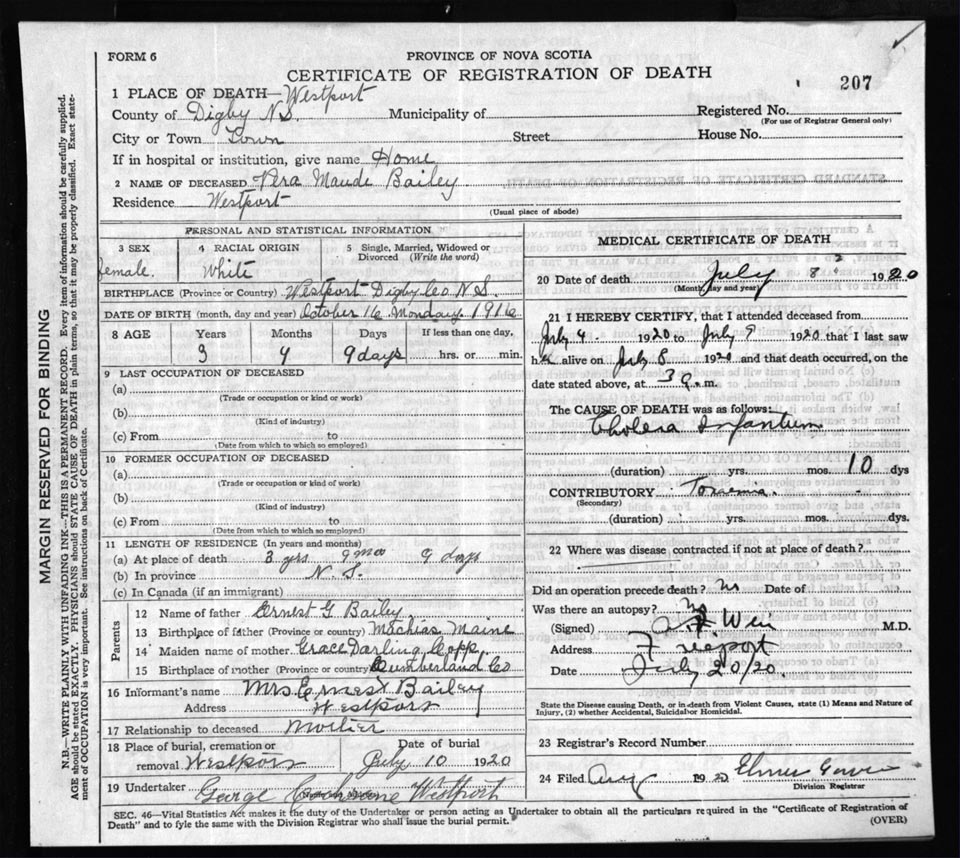 FORM 6
PROVINCE OF NOVA SCOTIA
CERTIFICATE OF REGISTRATION OF DEATH
207
1 PLACE OF DEATH—Westport
County of Digby N.S. Municipality of
Registered No.
(For use of Registrar General only)
City or Town Town Street House No.
If in hospital or institution, give name Home
2 NAME OF DECEASED Vera Maude Bailey
Residence Westport
(Usual place of abode)
MARGIN RESERVED FOR BINDING
N.B.—WRITE PLAINLY WITH UNFADING INK—THIS IS A PERMANENT RECORD. Every item of information should be carefully supplied.
AGE should be stated EXACTLY. PHYSICIANS should STATE CAUSE OF DEATH in plain terms, so that it may be properly classified. Exact state-
ment of OCCUPATION is very important. See instructions on back of Certificate.
PERSONAL AND STATISTICAL INFORMATION
3 SEX 4 RACIAL ORIGIN 5 Single, Married, Widowed or
Divorced (Write the word)
female. White
BIRTHPLACE (Province or Country) Westport Digby Co N.S.
DATE OF BIRTH (month, day and year) October 16 Monday. 1916
8 AGE Years Months Days If less than one day,
3 9 days hrs. or min.
9 LAST OCCUPATION OF DECEASED
(a)
(Trade or occupation or kind or work)
(b)
(Kind of industry)
(c) From to
(Date from which to which so employed)
10 FORMER OCCUPATION OF DECEASED
(a)
(Trade or occupation or kind of work)
(b)
(Kind of industry)
(c) From to
(Date from which to which so employed)
11 LENGTH OF RESIDENCE (In years and months)
(a) At place of death 3 yrs 9 mos 9 days
(b) In province N.S.
(c) In Canada (if an immigrant)
Parents
12 Name of father Ernest G Bailey
13 Birthplace of father (Province or country) Machias Maine
14 Maiden name of mother. Grace Darling Copp.
15 Birthplace of mother (Province or country) Cumberland Co
16 Informant's name Mrs Ernest Bailey
Address Westport
17 Relationship to deceased Mother
18 Place of burial, cremation or
removal Westport
Date of burial
July 10 1920
19 Undertaker George Westport
MEDICAL CERTIFICATE OF DEATH
20 Date of death July 8 1920
(Month, day and year)
21 I HEREBY CERTIFY, that I attended deceased from
July 4. 1920 to July 1920 that I last saw
alive on July 8 1920 and that death occurred, on the
date stated above, at 3 a. m.
The CAUSE OF DEATH was as follows:
Cholera Infantum
(duration) yrs. mos. 10 dys
CONTRIBUTORY Toxemia.
(Secondary)
(duration) yrs. mos. dys.
22 Where was disease contracted if not at place of death?
Did an operation precede death? No Date of
Was there an autopsy? No
(Signed) Weir M.D.
Address Freeport
Date July 20/20.
State the Disease causing Death, or in death from Violent Causes, state (1) Means and Nature of
Injury, (2) whether Accidental, Suicidal or Homicidal.
23 Registrar's Record Number
24 Filed Aug 1920 Elmer
Division Registrar
SEC. 46—Vital Statistics Act makes it the duty of the Undertaker or person acting as Undertaker to obtain all the particulars required in the "Certificate of Registration of
Death" and to fyle the same with the Division Registrar who shall issue the burial permit.
(OVER)